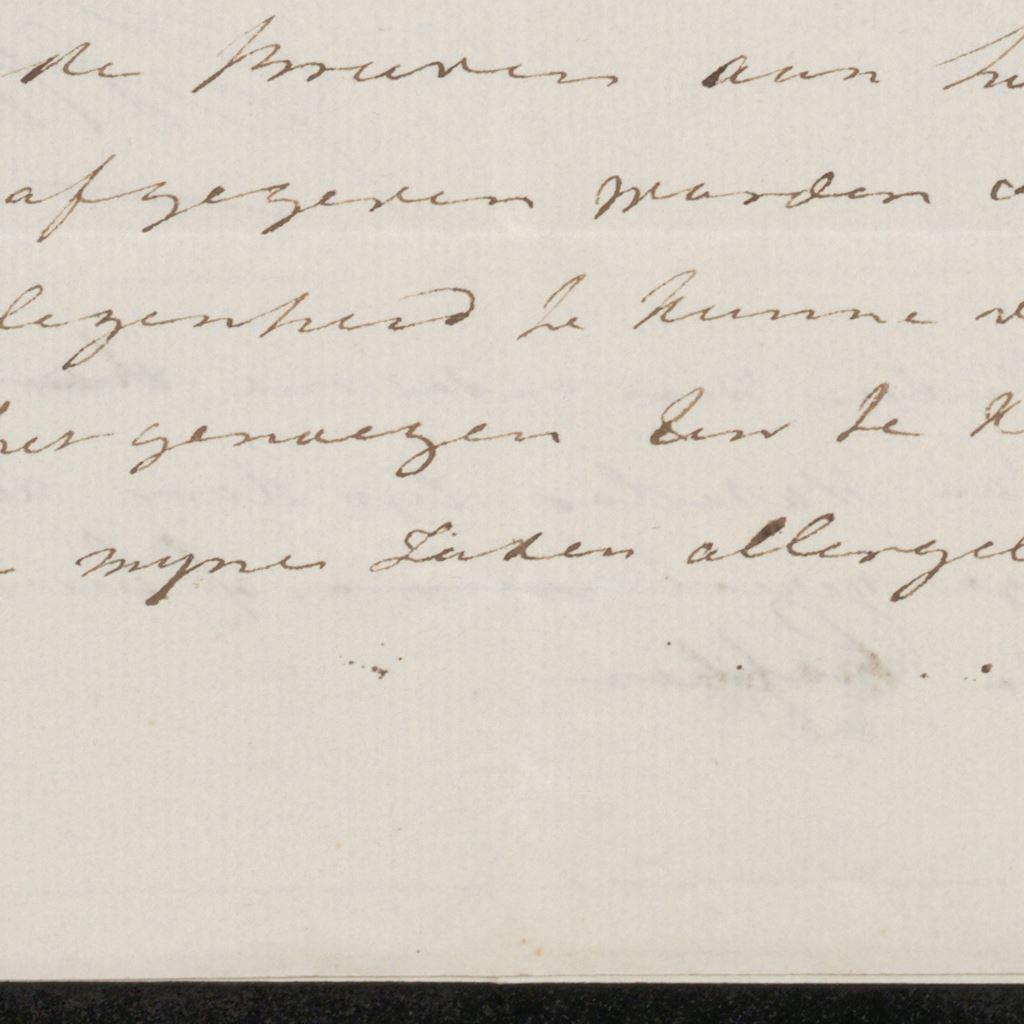 de proeven aan hu
afgegeven worden o
legenheid te kunne v
het genoegen zien te K
mijne zaken allergel